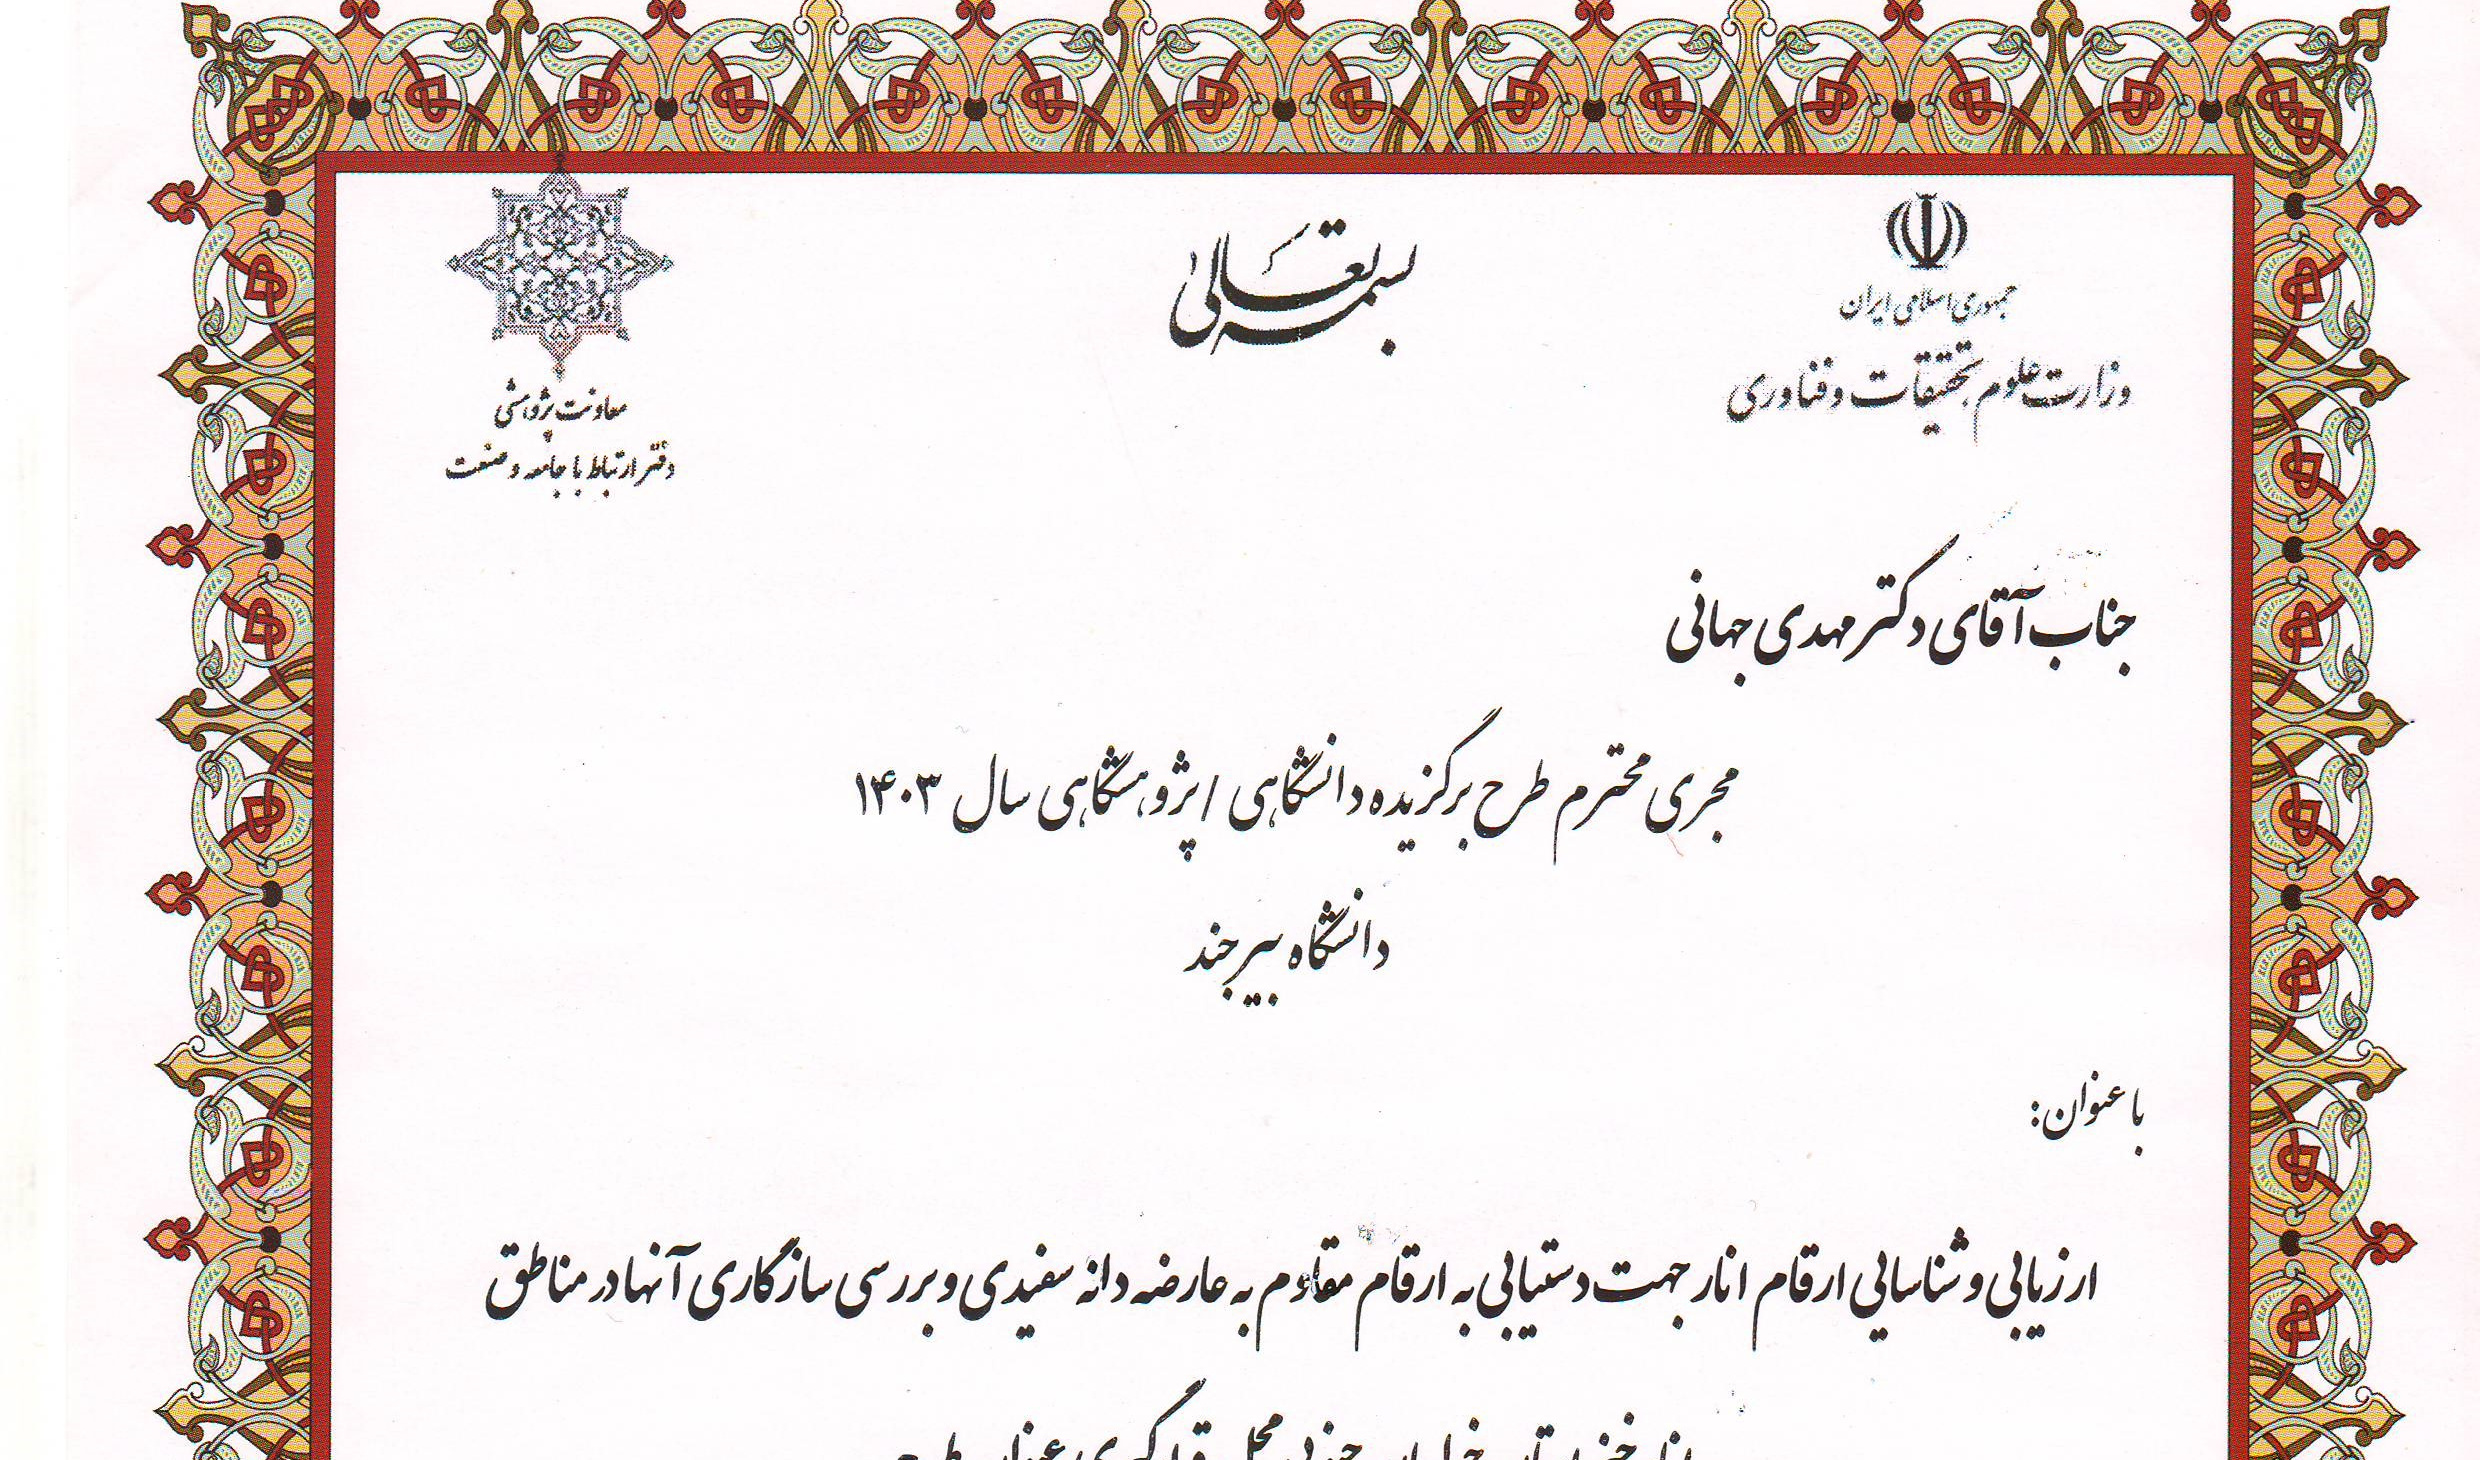 بسمه تعالی
جمهوری اسلامی ایران
وزارت علوم تحقیقات و فناوری
معاونت پژوهشی
دفتر ارتباط با جامعه و صنعت
جناب آقای دکتر مهدی جهانی
مجری محترم طرح برگزیده دانشگاهی / پژوهشگاهی سال ۱۴۰۳
دانشگاه بیرجند
با عنوان:
ارزیابی و شناسایی ارقام انار جهت دستیابی به ارقام مقاوم به عارضه دانه سفیدی و بررسی سازگاری آنها در مناطق